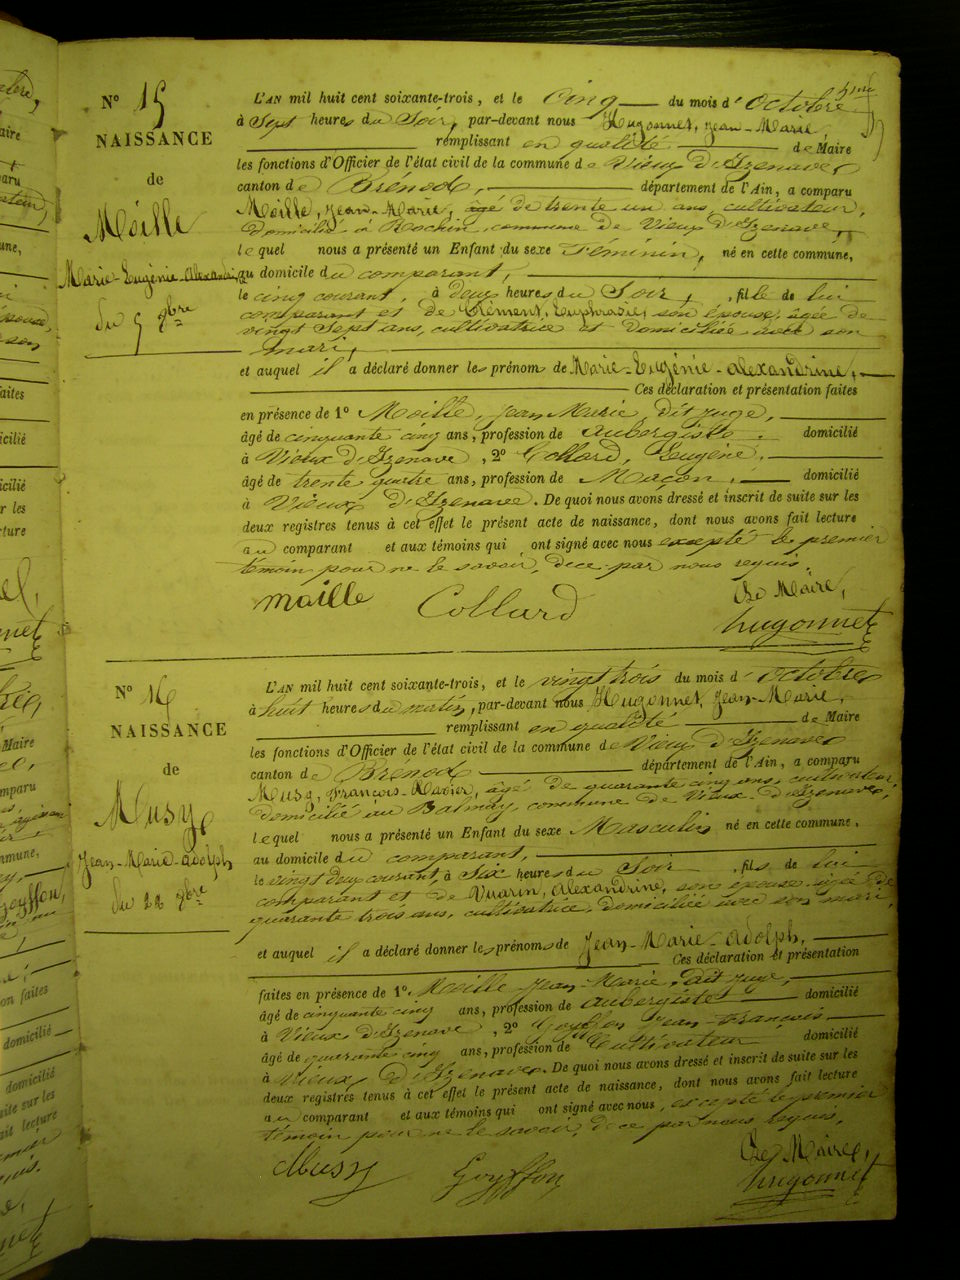 N° 15
NAISSANCE
de
Moille
Marie-Eugénie-Alexandrine
du 5 8bre
L'AN mil huit cent soixante-trois, et le Cinq du mois d'Octobre
à Sept heures du Soir, par-devant nous Hugonnet, Jean-Marie,
remplissant en qualité de Maire
les fonctions d'Officier de l'état civil de la commune de Vieux d'Izenave
canton de Brénod, département de l'Ain, a comparu
Moille, Jean-Marie, âgé de trente un ans, cultivateur,
domicilié à Rochin, commune de Vieux d'Izenave,
lequel nous a présenté un Enfant du sexe Féminin, né en cette commune,
au domicile du comparant,
le cinq courant, à deux heures du Soir, fille de lui
comparant et de Clément, Euphrasie, son épouse, âgée de
vingt Sept ans, cultivatrice et domiciliée avec son
mari,
et auquel il a déclaré donner les prénoms de Marie-Eugénie-alexandrine,
Ces déclaration et présentation faites
en présence de 1° Moille, Jean Marie, dit juge,
âgé de cinquante cinq ans, profession de aubergiste, domicilié
à Vieux d'Izenave, 2° Collard, Eugène,
âgé de trente quatre ans, profession de Maçon, domicilié
à Vieux d'Izenave. De quoi nous avons dressé et inscrit de suite sur les
deux registres tenus à cet effet le présent acte de naissance, dont nous avons fait lecture
au comparant et aux témoins qui ont signé avec nous excepté le premier
témoin pour ne le savoir, de ce par nous requis.
maille Collard Le Maire,
hugonnet
N° 16
NAISSANCE
de
Musy
Jean-Marie-adolph
du 22 8bre
L'AN mil huit cent soixante-trois, et le vingt trois du mois d'octobre
à huit heures du matin, par-devant nous Hugonnet, Jean-Marie,
remplissant en qualité de Maire
les fonctions d'Officier de l'état civil de la commune de Vieux d'Izenave
canton de Brénod département de l'Ain, a comparu
Musy, François-Xavier, âgé de quarante cinq ans, cultivateur,
domicilié au Balmay, commune de Vieux-d'Izenave,
lequel nous a présenté un Enfant du sexe Masculin né en cette commune,
au domicile du comparant,
le vingt deux courant, à Six heures du Soir, fils de lui
comparant et de Vuarin, Alexandrine, son épouse âgée de
quarante trois ans, cultivatrice, domiciliée avec son mari,
et auquel il a déclaré donner les prénoms de Jean-Marie-adolph,
Ces déclaration et présentation
faites en présence de 1° Moille Jean-Marie, dit juge,
âgé de cinquante cinq ans, profession de aubergiste domicilié
à Vieux d'Izenave, 2° Goyffon Jean François
âgé de quarante cinq ans, profession de Cultivateur domicilié
à Vieux d'Izenave. De quoi nous avons dressé et inscrit de suite sur les
deux registres tenus à cet effet le présent acte de naissance, dont nous avons fait lecture
au comparant et aux témoins qui ont signé avec nous, excepté le premier
témoin pour ne le savoir, de ce par nous requis.
Musy Goyffon Le Maire,
hugonnet